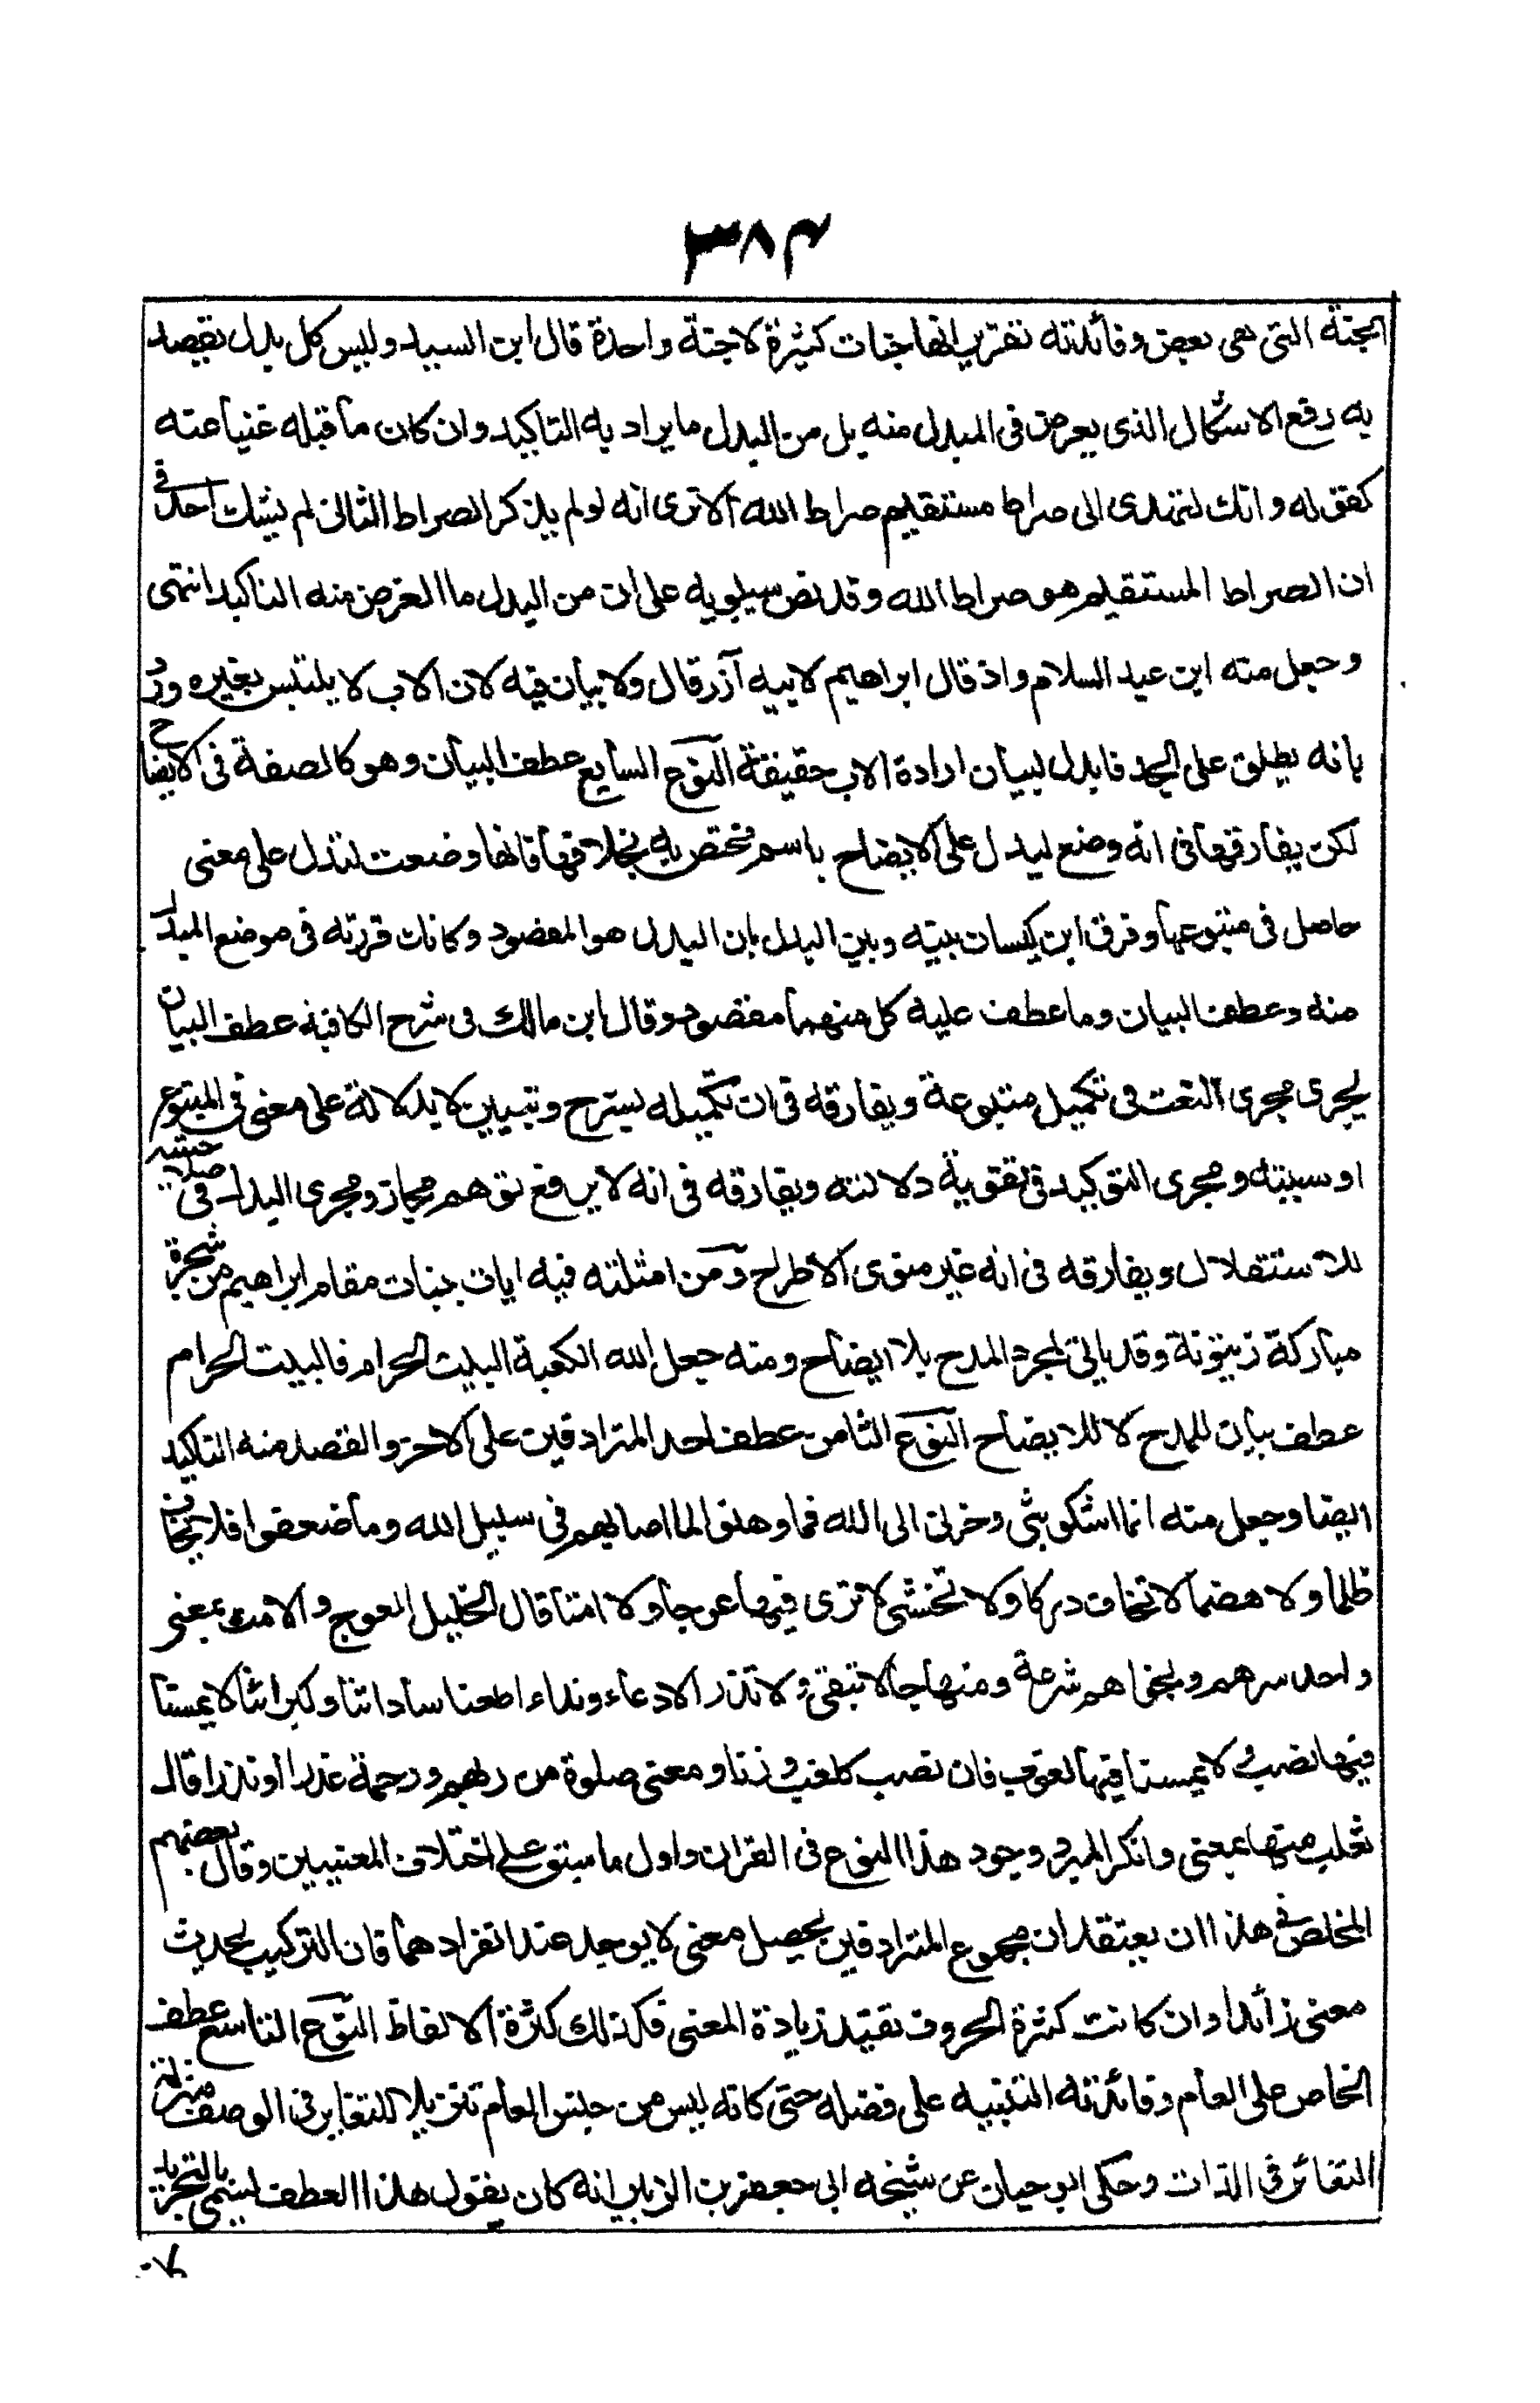 ٣٨٤
الجنة التى هى بعض وفائدته تقرير انها جنات كثيرة لا جنة واحدة قال ابن السيد وليس كل بدل يقصد
به رفع الاشكال الذى يعرض فى المبدل منه بل من البدل ما يراد به التاكيد وان كان ما قبله غنيا عنه
كقوله وانك لتهدى الى صراط مستقيم صراط الله ألا ترى انه لو لم يذكر الصراط الثانى لم يشك احد فى
ان الصراط المستقيم هو صراط الله وقد نص سيبويه على ان من البدل ما الغرض منه التاكيد انتهى
وجعل منه ابن عبد السلام واذ قال ابراهيم لابيه آزر قال ولا بيان فيه لان الاب لا يلتبس بغيره ورد
بانه يطلق على الجد فابدل لبيان ارادة الاب حقيقة النوع السابع عطف البيان وهو كالصفة فى الايضاح
لكن يفارقها فى انه وضع ليدل على الايضاح باسم مختص به بخلافها فانها وضعت لتدل على معنى
حاصل فى متبوعها وفرق ابن كيسان بينه وبين البدل بان البدل هو المقصود وكانك قررته فى موضع المبدل
منه وعطف البيان وما عطف عليه كل منهما مقصود وقال ابن مالك فى شرح الكافية عطف البيان
يجرى مجرى النعت فى تكميل متبوعة ويفارقه فى ان تكميله بشرح وتبيين لا بدلالة على معنى فى المتبوع
او سببيته ومجرى التوكيد فى تقوية دلالته ويفارقه فى انه لا يرفع توهم مجاز ومجرى البدل فى صلاحيته
للاستقلال ويفارقه فى انه غير منوى الاطراح ومن امثلته فيه ايات بينات مقام ابراهيم من شجرة
مباركة زيتونة وقد ياتى لمجرد المدح بلا ايضاح ومنه جعل الله الكعبة البيت الحرام فالبيت الحرام
عطف بيان للمدح لا للايضاح النوع الثامن عطف احد المترادفين على الاخر والقصد منه التاكيد
ايضا وجعل منه انما اشكو بثى وحزنى الى الله فما وهنوا لما اصابهم فى سبيل الله وما ضعفوا فلا يخاف
ظلما ولا هضما لا تخاف دركا ولا تخشى لا ترى فيها عوجا ولا امتا قال الخليل العوج والامت بمعنى
واحد سرهم ونجواهم شرعة ومنهاجا لا تبقى ولا تذر الا دعاء ونداء اطعنا سادتنا وكبرائنا لا يمسنا
فيها نصب ولا يمسنا فيها لغوب فان نصب كلغب وزنا ومعنى صلوة من ربهم ورحمة عذرا أو نذرا قال
ثعلب هما بمعنى وانكر المبرد وجود هذا النوع فى القران واول ما سبق على اختلاف المعنيين وقال بعضهم
المخلص فى هذا ان يعتقد ان مجموع المترادفين يحصل معنى لا يوجد عند انفرادهما فان التركيب يحدث
معنى زائدا وان كانت كثرة الحروف تفيد زيادة المعنى فكذلك كثرة الالفاظ النوع التاسع عطف
الخاص على العام وفائدته التنبيه على فضله حتى كانه ليس من جنس العام تنزيلا للتغاير فى الوصف منزلة
التغائر فى الذات وحكى ابو حيان عن شيخه ابى جعفر بن الزبير انه كان يقول هذا العطف ليسمى بالتجريد